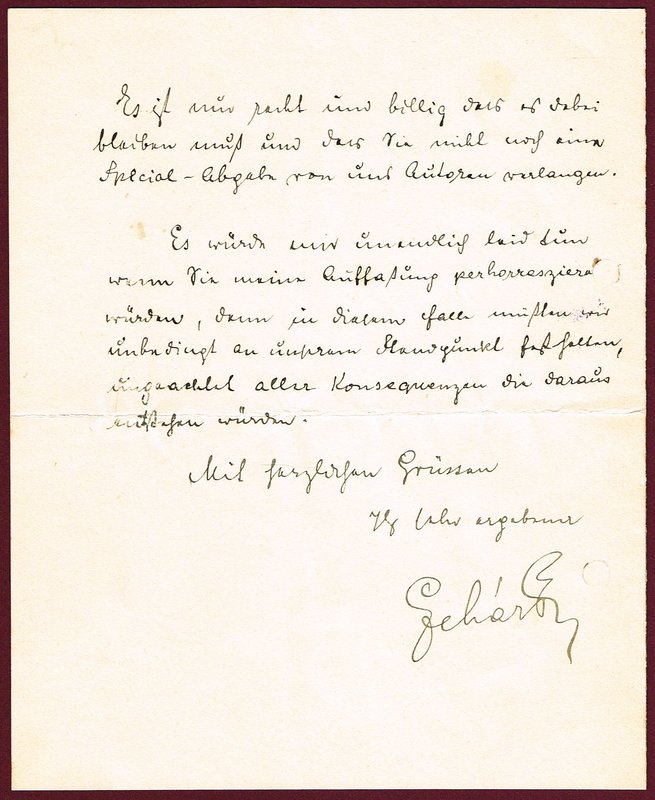 Es ist nur recht und billig dass es dabei
bleiben muß und dass Sie nicht noch eine
Special-Abgabe von uns Autoren verlangen.
Es würde mir unendlich leid tun
wenn Sie meine Auffaßung perhorreszieren
würden, denn in diesem Falle müßten wir
unbedingt an unserem Standpunkt festhalten,
ungeachtet aller Konsequenzen die daraus
entstehen würden.
Mit herzlichen Grüssen
Ihr sehr ergebener